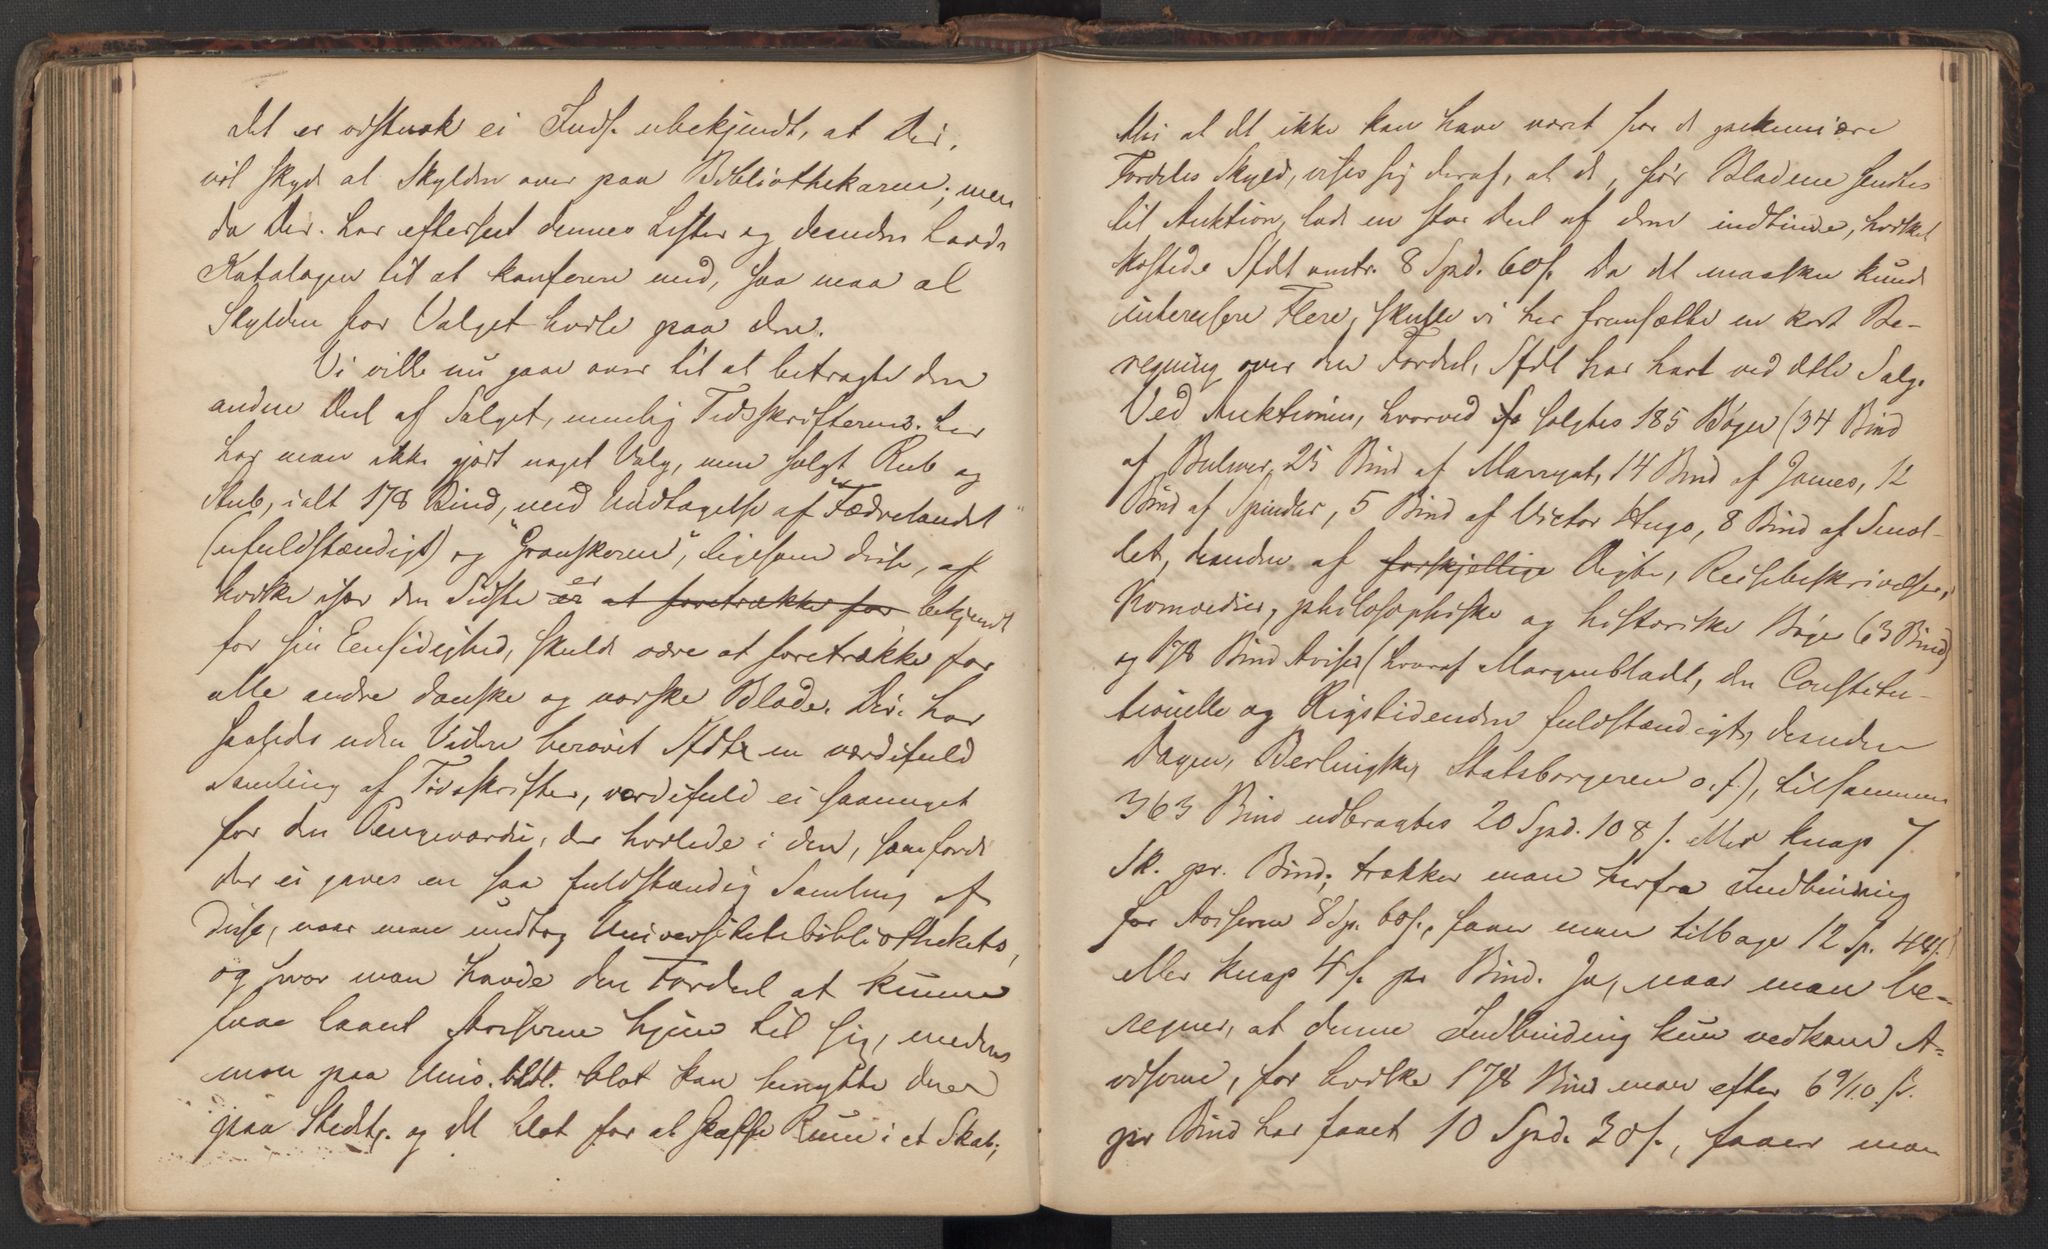 Det er vistnok ei Inds. ubekjendt, at Dir.
vil skyde al Skylden over paa Bibliothekaren; men
da Dir. har efterseet dennes Lister og desuden havde
Katalogen til at konferere med, saa maa al
Skylden for Valget hvile paa den.
Vi ville nu gaae over til at betragte den
anden Deel af Salget, nemlig Tidsskrifternes. Her
har man ikke gjort noget Valg, men solgt Rub og
Stub, ialt 178 Bind, med Undtagelse af "Fædrelandet"
(ufuldstændigt) og "Granskeren", ligesom disse, af
hvilke især den Sidste er at foretrække for er bekjendt
for sin Eensidighed, skulde være at foretrække for
alle andre danske og norske Blade. Dir. har
saaledes uden Videre berøvet Sfdt en værdifuld
Samling af Tidsskrifter, værdifuld ei saameget
for den Pengeværdi, der hvilede i den, som fordi
der ei gaves en saa fuldstændig Samling af
disse, naar man undtog Universitetsbibliothekets,
og hvor man havde den Fordeel at kunne
faae laant Aviserne hjem til sig, medens
man paa Univ. bibl. blot kan benytte dem
paa Stedet. og det blot for at skaffe Rum i et Skab;
Thi at det ikke kan have været for de pekuniære
Fordeles Skyld, vises sig deraf, at de, før Bladene sendtes
til Auktion, lod en stor Deel af dem indbinde, hvilket
kostede Sfdt omtr. 8 Spd. 60 s. Da det maaskee kunde
interessere Flere, skulle vi her fremsætte en kort Be-
regning over den Fordeel, Sfdt har havt ved dette Salg.
Ved Auktionen, hvorved fo solgtes 185 Bøger (34 Bind
af Bulwer, 25 Bind af Marryat, 14 Bind af James, 12
Bind af Spindler, 5 Bind af Victor Hugo, 8 Bind af Smol-
let, desuden af forskjellige Digte, Reisebeskrivelser,
Komoedier, philosophiske og historiske Bøger (63 Bind)
og 178 Bind Aviser (hvoraf Morgenbladt, den Constitu-
tionelle og Rigstidenden fuldstændigt, desuden
Dagen, Berlingske, Statsborgeren o.s.f.), tilsammen
363 Bind udbragtes 20 Spd. 108 s. eller knap 7
Sk. pr. Bind; trækker man herfra Indbinding
for Aviserne 8 Sp. 60 s., faaer man tilbage 12 Sp. 48 s.
eller knap 4 s. pr Bind. Ja, naar man be-
regner, at denne Indbinding kun vedkom A-
viserne, for hvilke 178 Bind man efter 6 9/10 s.
pr Bind har faaet 10 Spd. 30 s., faaer man